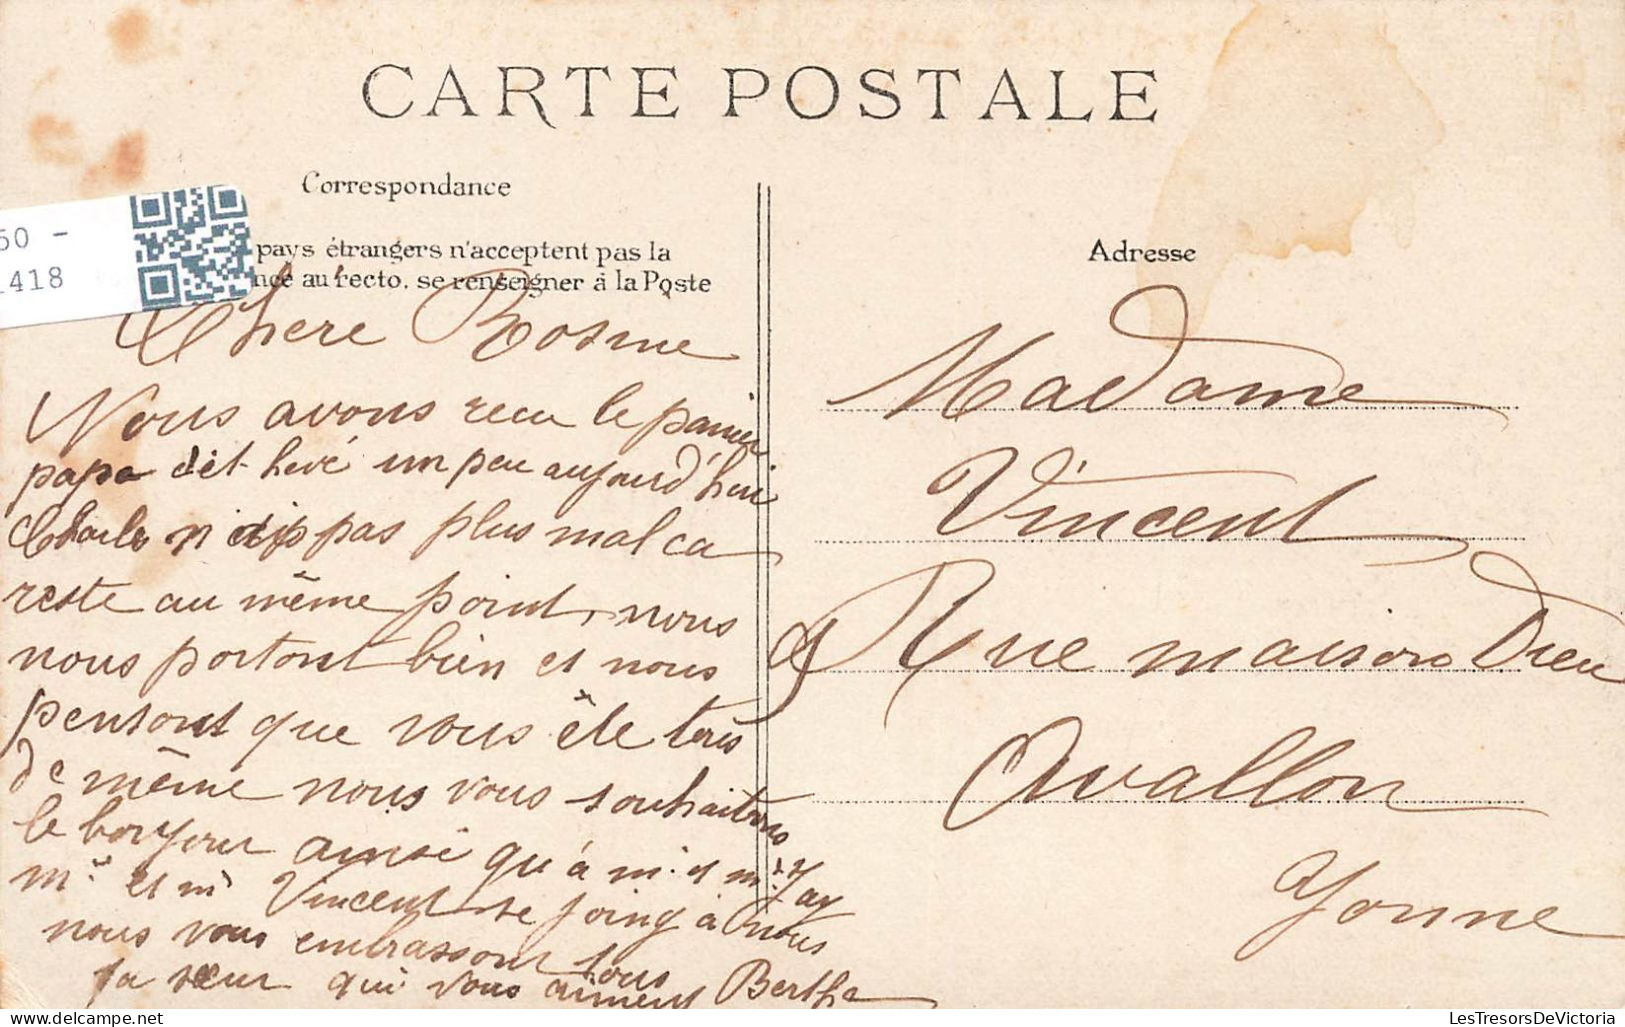 CARTE POSTALE
Correspondance
pays étrangers n'acceptent pas la
nce au recto, se renseigner à la Poste
Adresse
50 -
1418
Chere Rosine
Nous avons recu le panier
papa s'ét levé un peu aujourd'hui
Charle n pas plus mal ca
reste au même point, nous
nous portont bien et nous
pensont que vous ête tous
de même nous vous souhaitons
le bonjour ainsi qu'à m. et m. Jay
m. et m Vincent se joing à nous
nous vous embrassont tous
ta sœur qui vous aiment Berthe
Madame
Vincent
9 Rue maison Dieu
Avallon
Yonne
LesTresorsDeVictoria